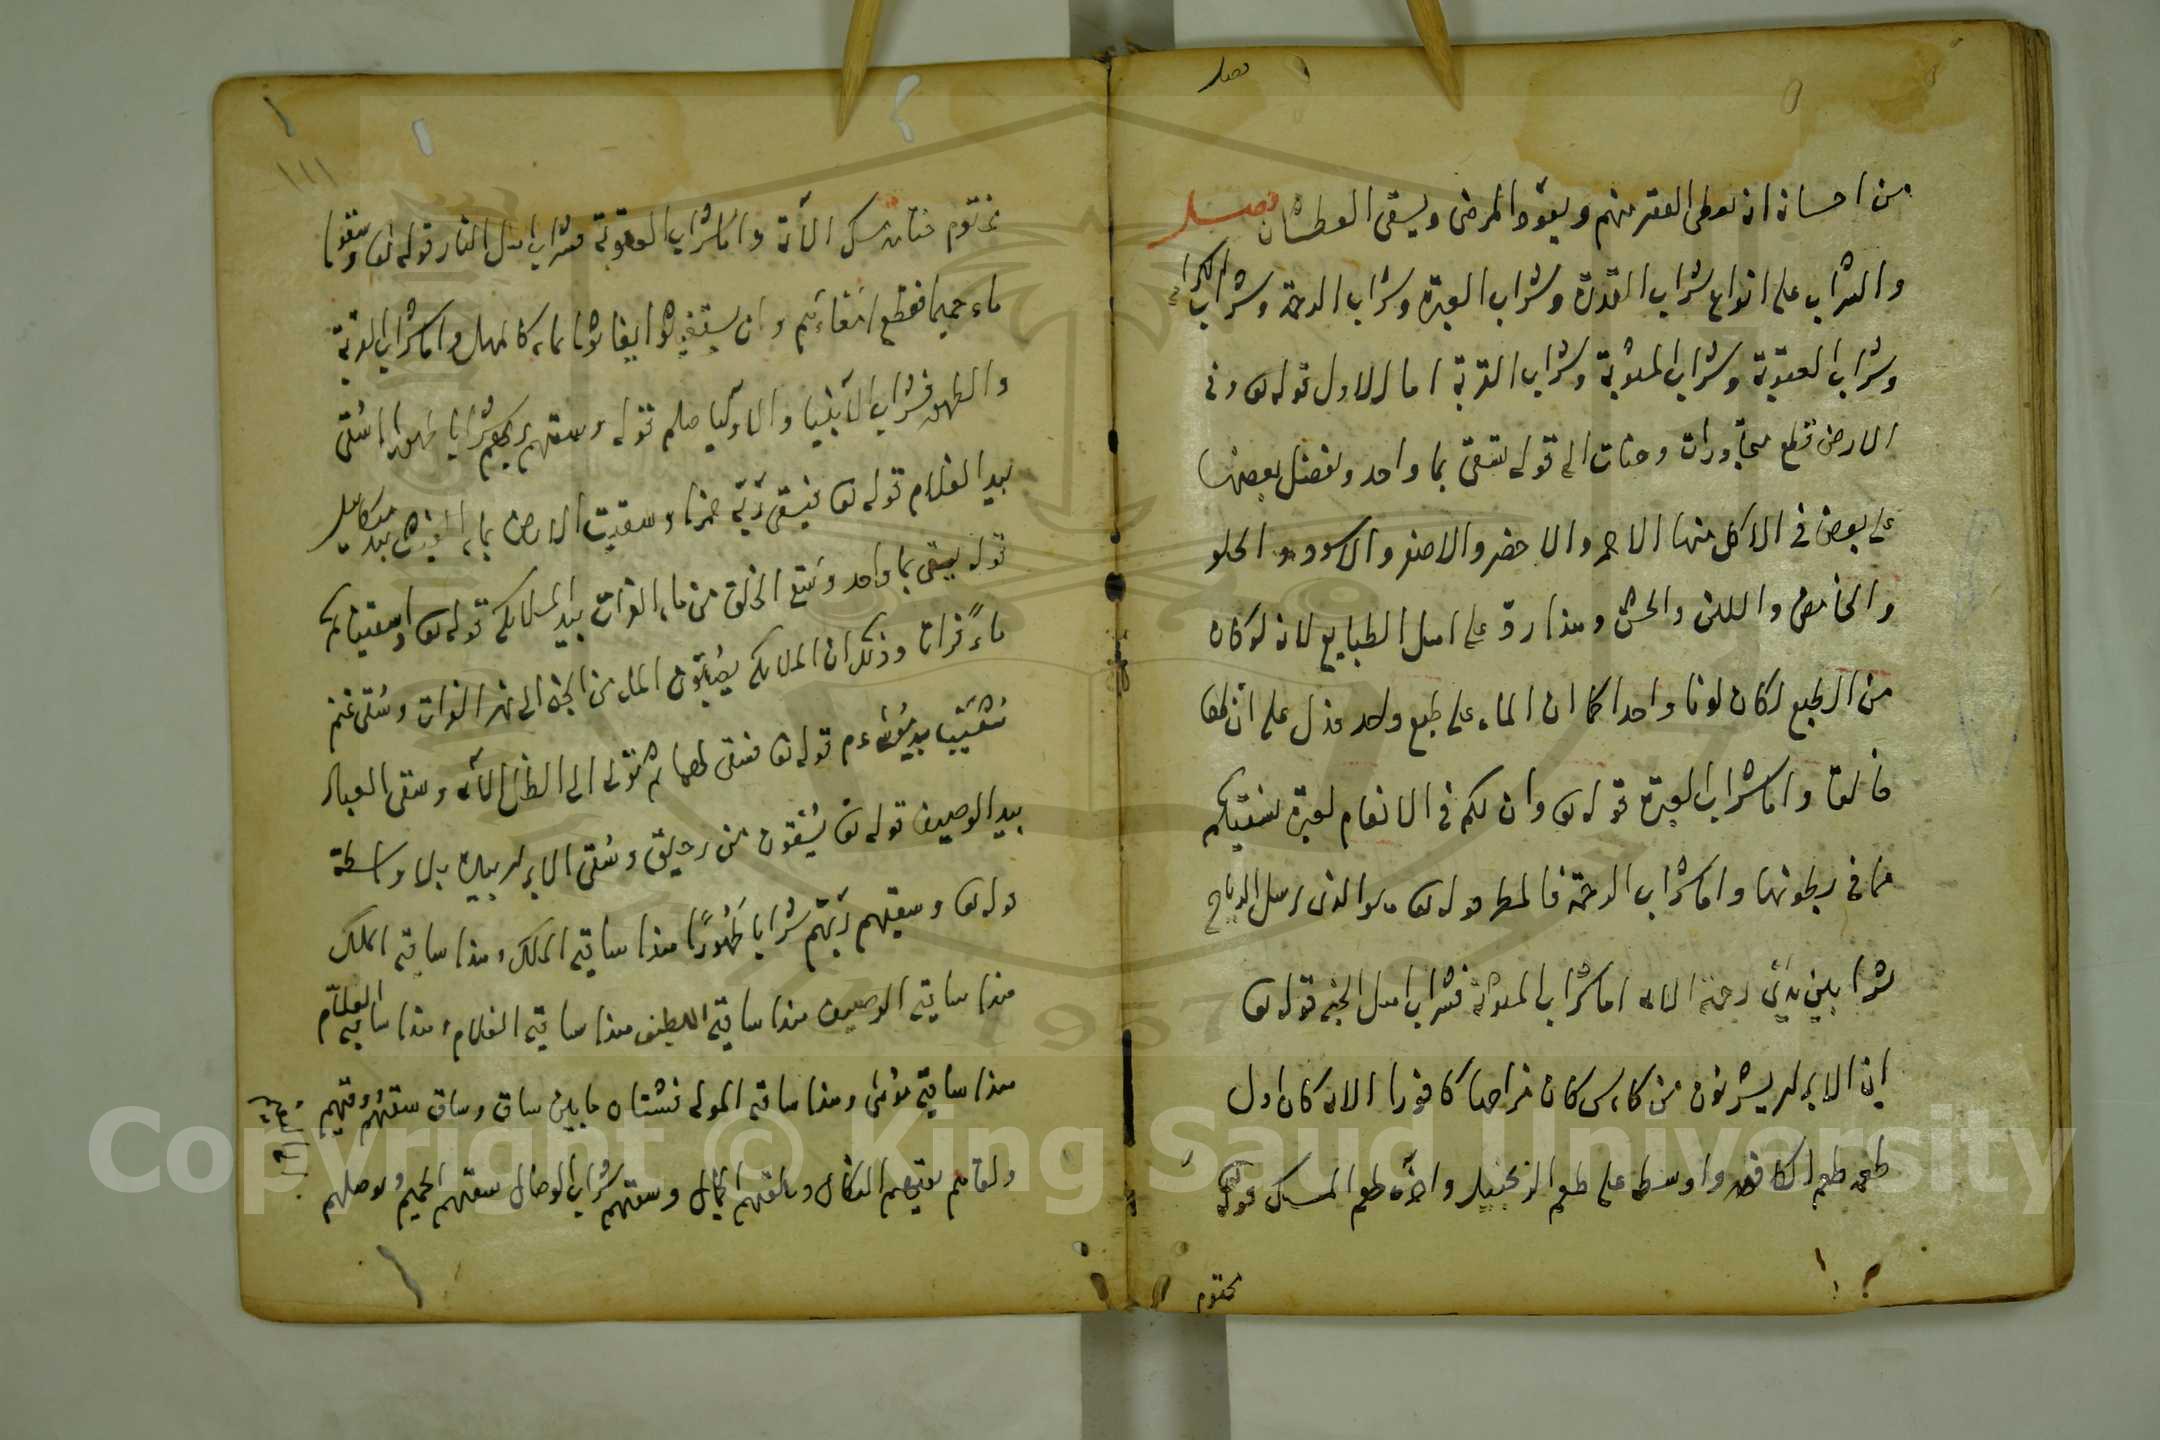 فصل
من احسانه ان يعطى الفقر منهم ويعود المرضى ويسقى العطشان فصل
والشراب على انواع شراب القدرة وشراب العبرة وشراب الرحمة وشراب الكرامة
وشراب العقوبة وشراب المثوبة وشراب القربة اما الاول قوله تع وفى
الارض قطع متجاورات وجنات الى قوله تسقى بما واحد ونفضل بعضها
على بعض فى الاكل منها الاحمر والاخضر والاصفر والاسود والحلو
والحامض واللين والخشن وهذا رد على اهل الطبايع لانه لو كان
من الطبع لكان لونا واحدا كما ان الماء على طبع واحد فدل على ان لها
خالقا واما شراب العبرة قوله تع وان لكم فى الانعام لعبرة نسقيكم
مما فى بطونها واما شراب الرحمة فالمطر قوله تع هو الذى يرسل الرياح
بشرا بين يدى رحمته الايه اما شراب المثوبة فشراب اهل الجنة قوله تع
ان الابرار يشربون من كاس كان مزاجها كافورا الايه كان اول
طعمه طعم الكافور واوسطه على طعم الزنجبيل واخره طعم المسك
مختوم
١١١
مختوم ختامه مسك الآية واما شراب العقوبة فشراب اهل النار قوله تع وسقوا
ماء حميما فقطع امعاءهم وان يستغيثوا يغاثوا بماء كالمهل واما شراب القربة
والطهور فشراب الانبيا والاوليا صلعم قوله وسقهم ربهم شرابا طهورا استقى
بيد الغلام قوله تع فيسقى ربه خمرا وسقيت الارض بماء بيد ميكائيل
قوله يسقى بما واحد الخلق من ماء الفرات بيد الملائكة قوله تع واسقيناكم
ماء فراتا وذلك ان الملائكة يصبون الماء من الجنة الى نهر الفرات وسقى غنم
شعيب بيد موسى ءم قوله تع فسقى لهما ثم تولى الى الظل الآية وسقى العباد
بيد الوصيف قوله تع يسقون من رحيق وسقى الابرار بلا واسطة
قوله تع وسقيهم ربهم شرابا طهورا هذا ساقيه الملك وهذا ساقيه الملك
هذا ساقيه الوصيف هذا ساقيه اللطيف هذا ساقيه الغلام وهذا ساقيه العلام
هذا ساقيه موسى وهذا ساقيه المولى فشتان ما بين ساق وساق
وسقهم شراب الوصال سقهم الحميم